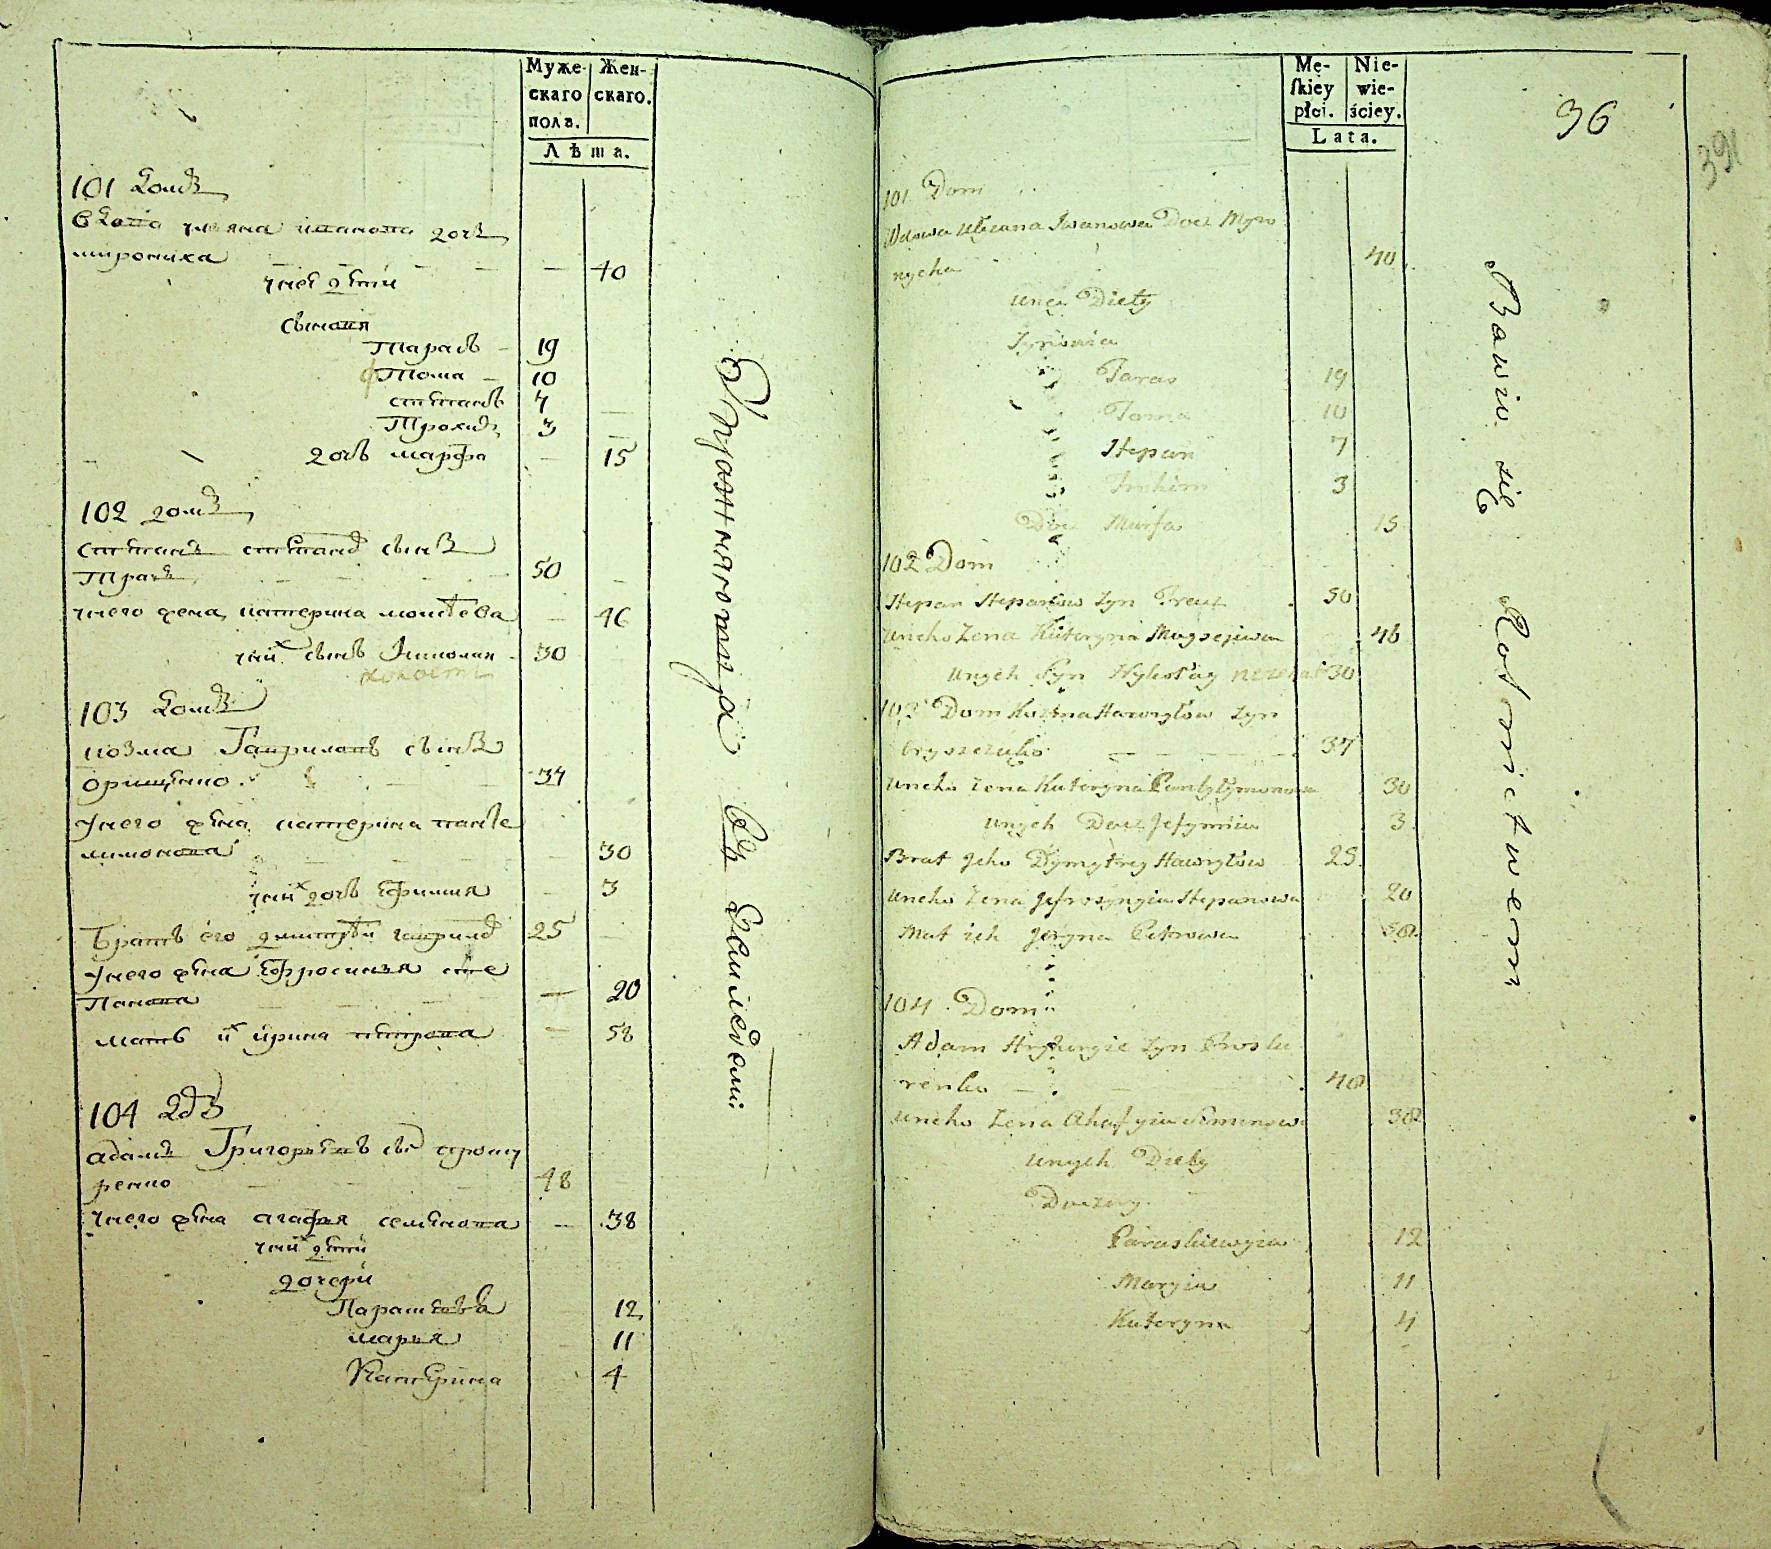 Муже-
скаго
пола.
Жен-
скаго.
Лѣта.
101 домъ
Вдова ульяна иванова дочь
мирониха 40
унеѣ дѣти
сыновя
Тарасъ 19
Тома 10
степанъ 7
Трохимъ 3
дочь марфа 15
102 домъ
степанъ степановъ сынъ
50
унего жена катерина моисеева 46
уних сынъ Николаи 30
холостъ
103 домъ
козма Гавриловъ сынъ
орищенко 37
унего жена катерина панте
лимонова 30
уних дочь Ефимия 3
братъ его дмитрѣи гаврилов 25
унего жена Ефросиния сте
панова 20
мать их ирина петрова 58
104 двъ
адамъ Григориевъ сы проску
ренко 48
унего жена агафия семенова 38
уних дѣти
дочери
Парасковия 12
мария 11
Катерина 4
Упражняютца въ Земледелии
Mę-
ſkiey
płci.
Nie-
wie-
ściey.
Lata.
36
391
101 Dom
Wdowa Ulijana Iwanowa Docz Myro
nycha 40
uneji Diety
Synowia
Taras 19
Toma 10
Stepan 7
Trochim 3
Docz Marfa 15
102 Dom
Stepan Stepanow Syn 50
uneho Żena Kateryna Moysejewa 46
unych Syn Nykołay nieżonat 30
103 Dom Kozma Hawryłow Syn
Oryszczenko 37
uneho Żena Kateryna Pantyłymonowa 30
unych Docz Jefymiia 3
Brat Jeho Dymytrey Hawryłow 25
uneho Żena Jefrosynyia Stepanowa 20
Mat ich Jeryna Petrowa 58
104 Dom
Adam Hryhoryie Syn Prosku
renko 48
uneho Żena Ahafyia Semenowa 38
unych Diety
Doczery
Paraskiewyia 12
Maryia 11
Kateryna 4
Bawio się Rolnictwem